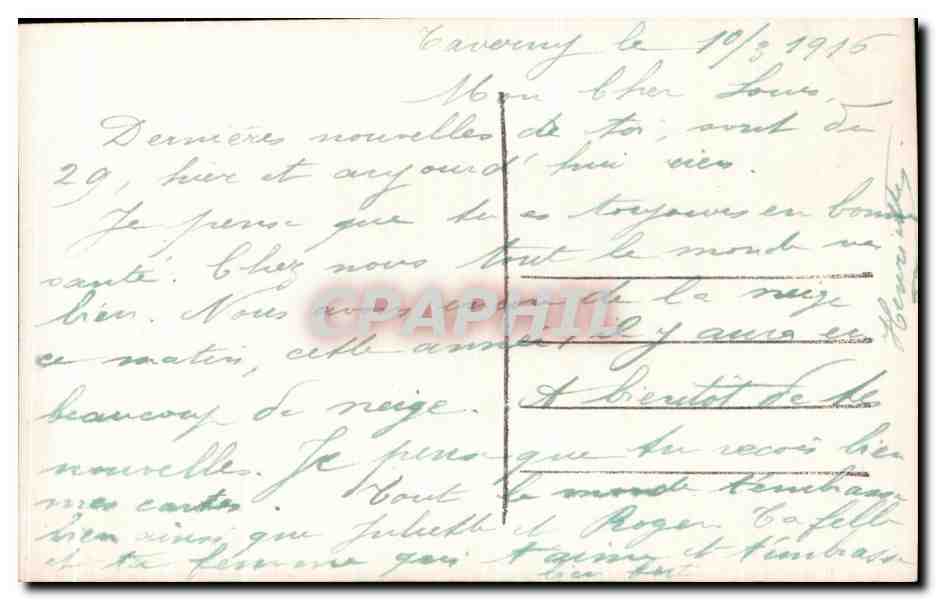 Taverny le 10/3 1916
Mon Cher Louis,
Dernières nouvelles de toi, sont du
29, hier et aujourd'hui rien.
Je pense que tu es toujours en bonne
santé. Chez nous tout le monde va
bien. Nous avons encore de la neige
CPAPHIL
ce matin, cette année, il y aura eu
beaucoup de neige. A bientôt de tes
nouvelles. Je pense que tu reçois bien
mes cartes. Tout le monde t'embrasse
bien ainsi que Juliette et Roger Ta fille
et ta femme qui t'aime et t'embrasse
bien fort
Henriette